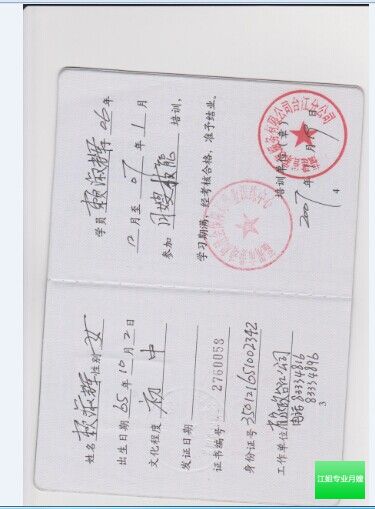 姓名 赖淑辉 性别 女
出生日期 65年10月2日
文化程度 初中
发证日期
证书编号 2760058
身份证号 350121651002342
工作单位 家政台江公司
电话 83334816
83334896
3
学员 赖淑辉 于06年
12月至07年1月
参加 月嫂技能 培训,
学习期满,经考核合格,准予结业。
培训单位(章)
2007年 月 日
4
江姐专业月嫂